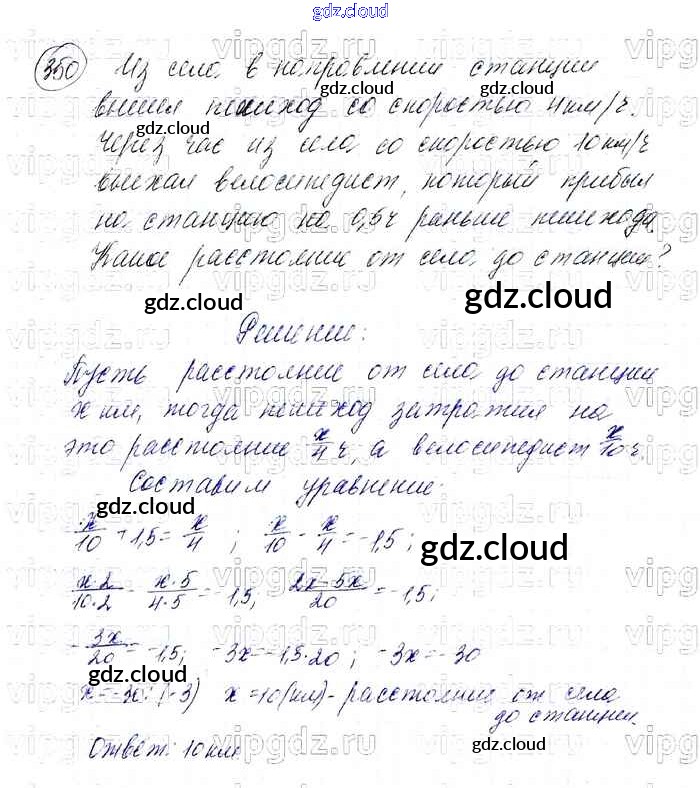 gdz.cloud
350 Из села в направлении станции
вышел пешеход со скоростью 4км/ч.
Через час из села со скоростью 10км/ч
выехал велосипедист, который прибыл
на станцию на 0,5ч раньше пешехода.
Какое расстояние от села до станции?
Решение:
Пусть расстояние от села до станции
x км, тогда пешеход затратил на
это расстояние x/4 ч, а велосипедист x/10 ч.
Составим уравнение:
x/10 + 1,5 = x/4 ; x/10 - x/4 = -1,5 ;
x·2/10·2 - x·5/4·5 = -1,5; 2x-5x/20 = -1,5;
-3x/20 = -1,5; -3x=-1,5·20 ; -3x=-30
x=-30:(-3) x=10(км)- расстояние от села
до станции.
Ответ: 10км.